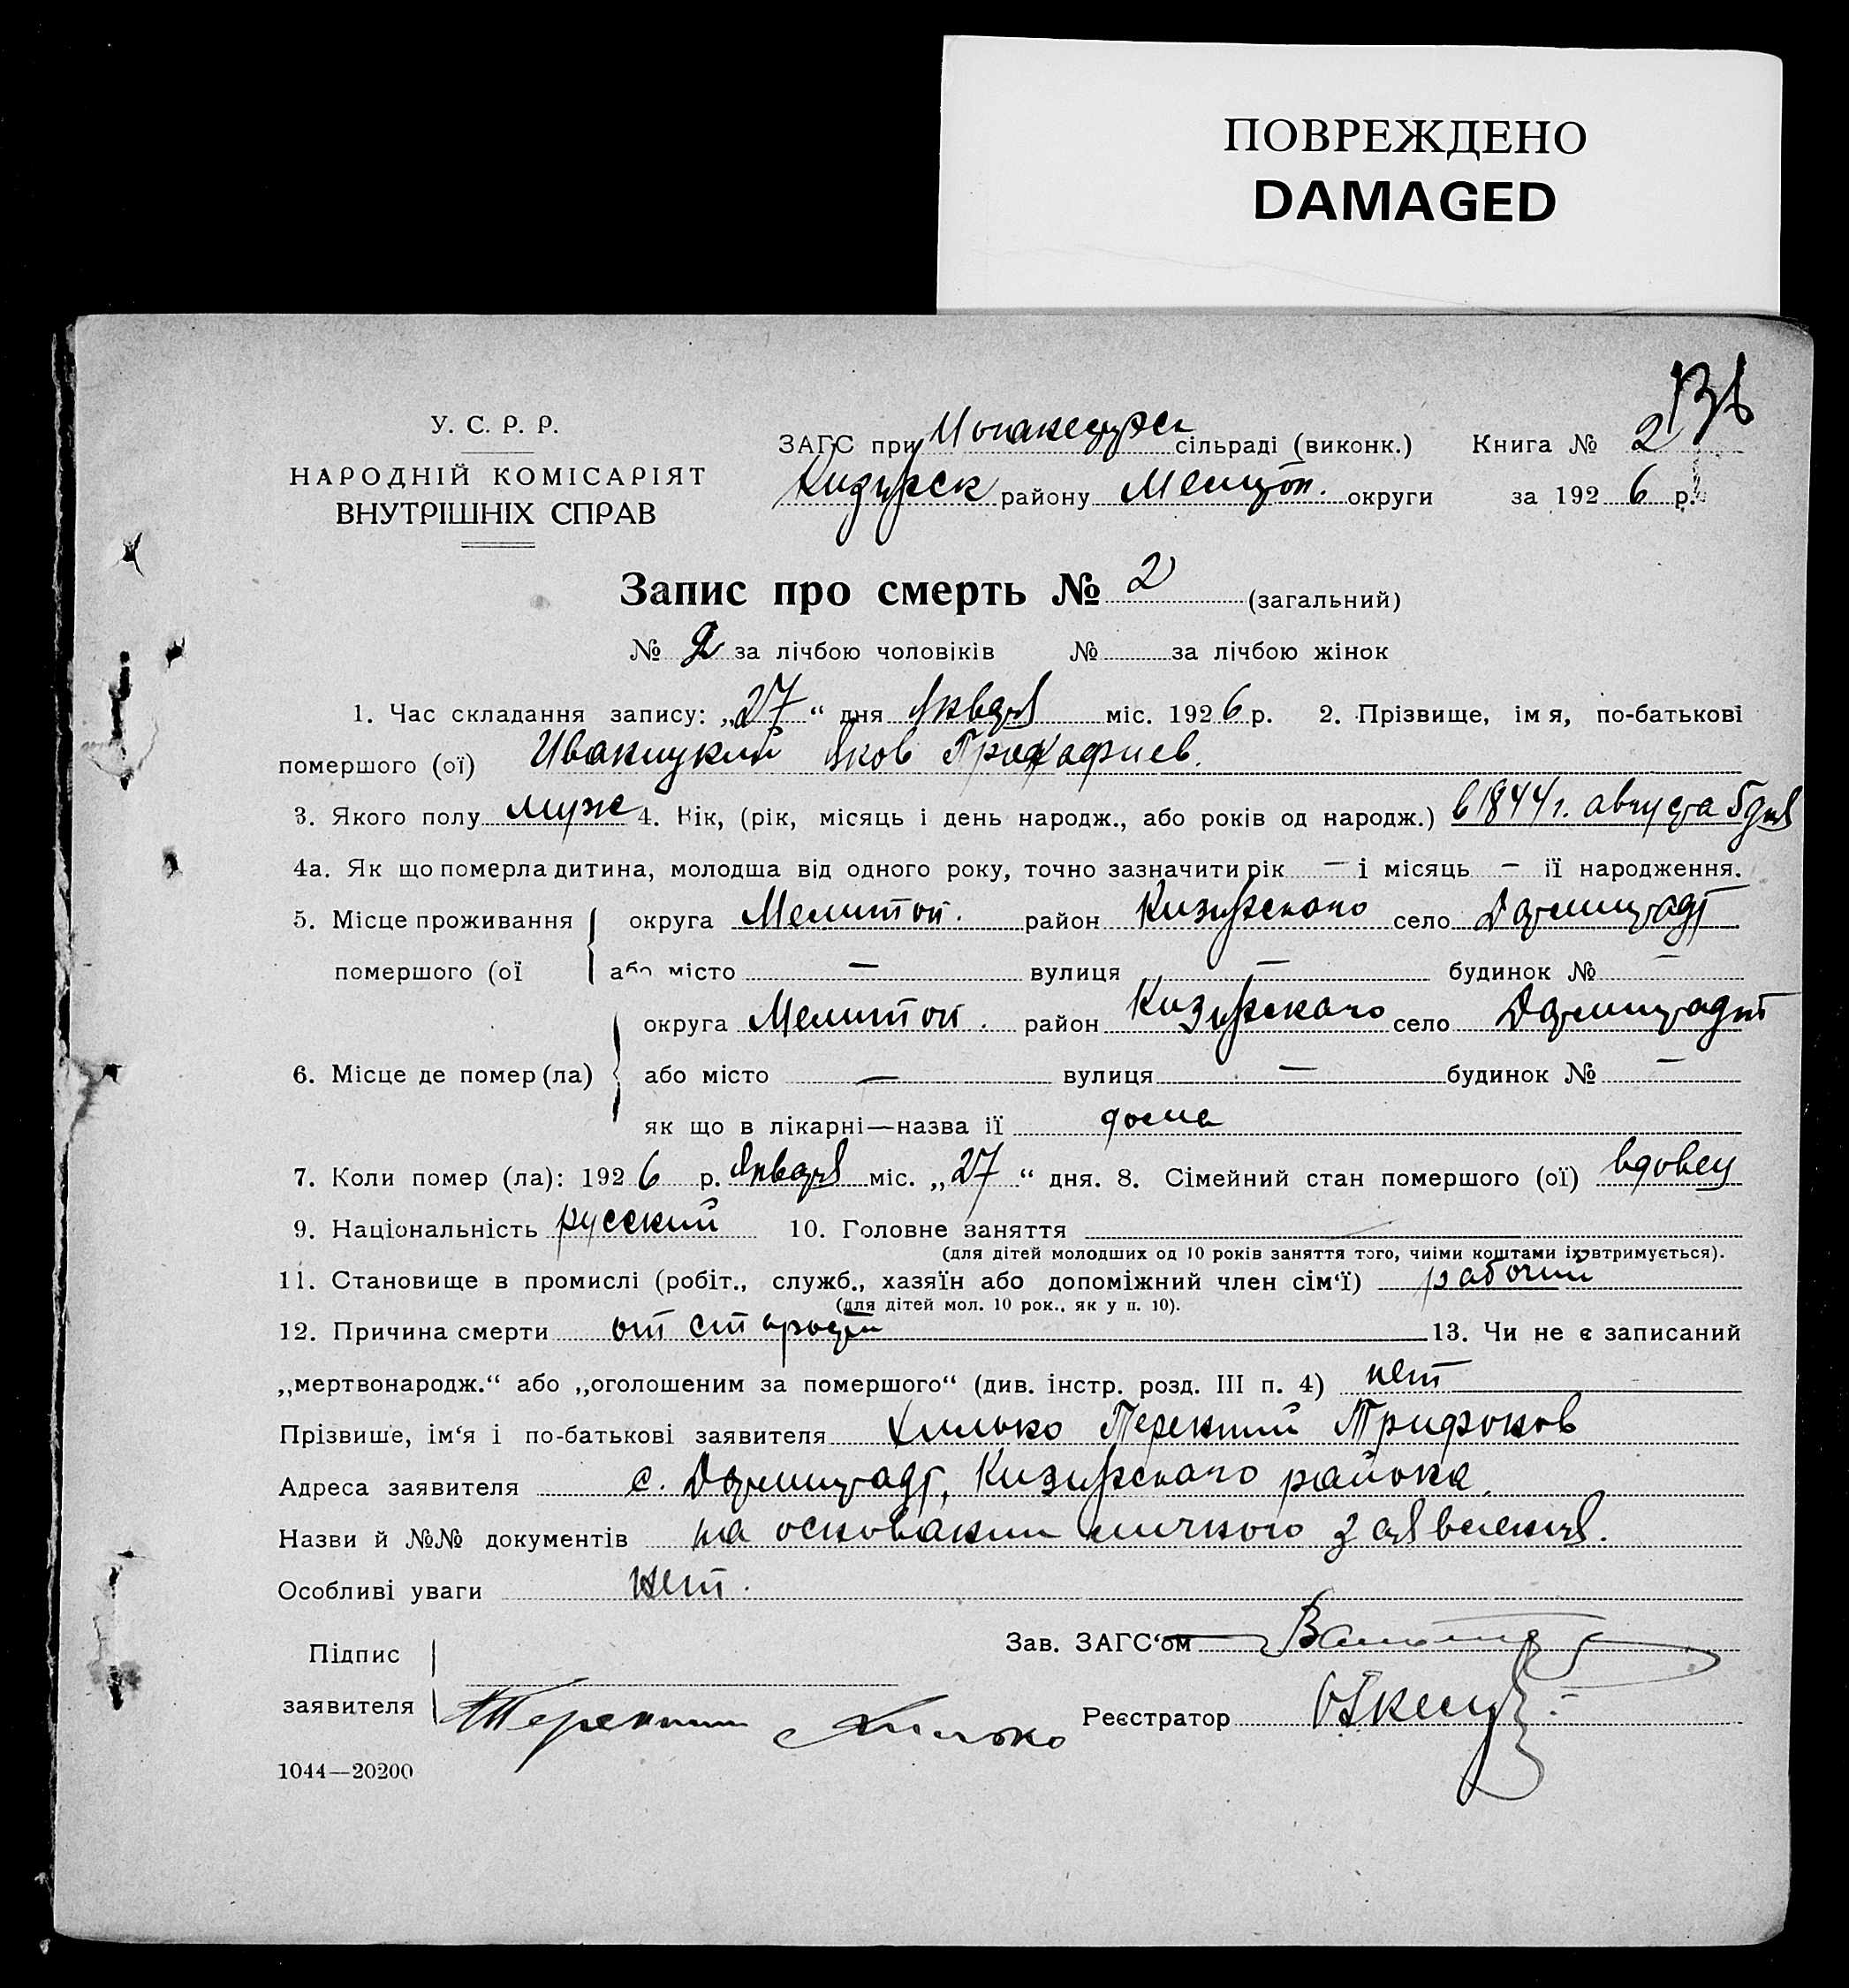 ПОВРЕЖДЕНО
DAMAGED
136
У. С. Р. Р.
НАРОДНІЙ КОМІСАРІЯТ
ВНУТРІШНІХ СПРАВ
ЗАГС при сільраді (виконк.) Книга № 2
району округи за 192 6 р.
Запис про смерть № 2 (загальний)
№ 2 за лічбою чоловіків № за лічбою жінок
1. Час складання запису: „27“ дня Января міс. 192 6 р. 2. Прізвище, імя, по-батькові
помершого (ої) Яков
3. Якого полу муж 4. Вік, (рік, місяць і день народж., або років од народж.) в 1844 г. августа 5 дня
4а. Як що померла дитина, молодша від одного року, точно зазначити рік — і місяць — ії народження.
5. Місце проживання округа Мелитоп. район село Дармштадт
помершого (ої або місто — вулиця — будинок № —
округа Мелитоп. район село Дармштадт
6. Місце де помер (ла) або місто — вулиця — будинок № —
як що в лікарні—назва ії дома
7. Коли помер (ла): 192 6 р. Января міс. „27“ дня. 8. Сімейний стан помершого (ої) вдовец
9. Національність русский 10. Головне заняття —
(для дітей молодших од 10 років заняття того, чиїми коштами іх втримується).
11. Становище в промислі (робіт., служб., хазяїн або допоміжний член сім‘ї) рабочий
(для дітей мол. 10 рок., як у п. 10).
12. Причина смерти от старости 13. Чи не є записаний
„мертвонародж.“ або „оголошеним за помершого“ (див. інстр. розд. III п. 4) нет
Прізвише, ім‘я і по-батькові заявителя Хилько Терентий Трифонов
Адреса заявителя с. Дармштадт, района.
Назви й №№ документів на основании личного заявления.
Особливі уваги нет.
Зав. ЗАГС‘ом
Підпис
заявителя Терентий Хилько
Реєстратор
1044—20200